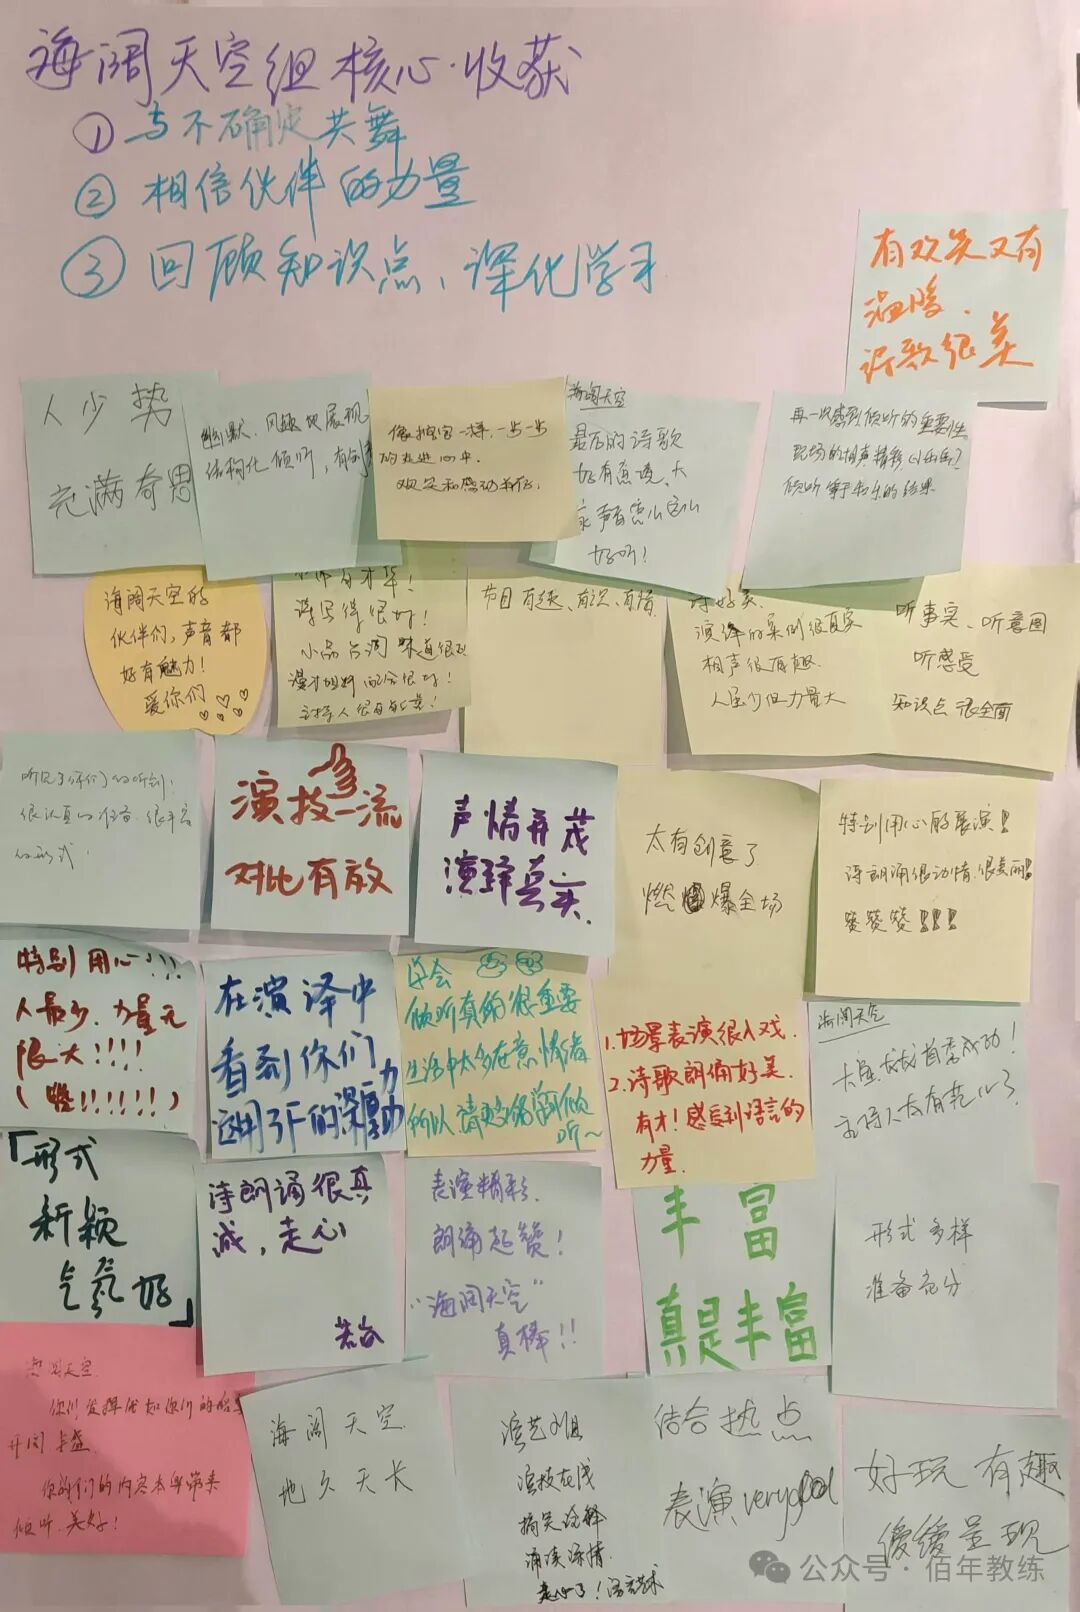 海阔天空组核心·收获
①与不确定共舞
②相信伙伴的力量
③回顾知识点、深化学习
有欢笑又有
温暖.
诗歌很美
人少势
充满奇思
幽默、风趣地展现
结构化倾听,有创
像挖宝一样,一步一步
的走进心中.
欢笑和感动并存.
海阔天空
最后的诗歌
好有意境、大
家声音怎么这么
好听!
再一次感到倾听的重要性
现场的相声精彩
倾听等于
海阔天空的
伙伴们,声音都
好有魅力!
爱你们
诗写得很好!
小品台词 味道很
漫才姐妹 配合很好!
主持人很有
节目有趣、有识、有情
诗好美.
演绎的案例很真实
相声很有趣.
人虽少但力量大
听事实、听意图
听感受
知识点很全面
很认真的准备.很丰富
的形式.
演技一流
对比有效
声情并茂
演绎真实.
太有创意了
燃爆全场
特别用心的展演!!
诗朗诵很动情.很美丽!!
赞赞赞!!!!
特别用心!!!
人最少.力量无
限大!!!!
(赞!!!!!!)
在演译中
看到你们
运用了F的深厚功力
学会
倾听真的很重要
生活中太多在意情绪
所以请
听~
1.场景表演很入戏.
2.诗歌朗诵好美.
有才!感受到语言的
力量.
海阔天空
首秀成功!
主持人太有范儿了
「形式
新颖
气氛好」
诗朗诵很真
诚,走心
表演精彩.
朗诵超赞!
“海阔天空”
真棒!!
丰富
真是丰富
形式多样
准备充分
海阔天空.
你们发挥
开阔 丰盛.
你们的内容本身带来
倾听.美好!
海阔天空
地久天长
演艺小组
演技在线
搞笑诠释
诵读深情.
走心了!
结合热点
表演very good
好玩 有趣
缓缓呈现
公众号·佰年教练